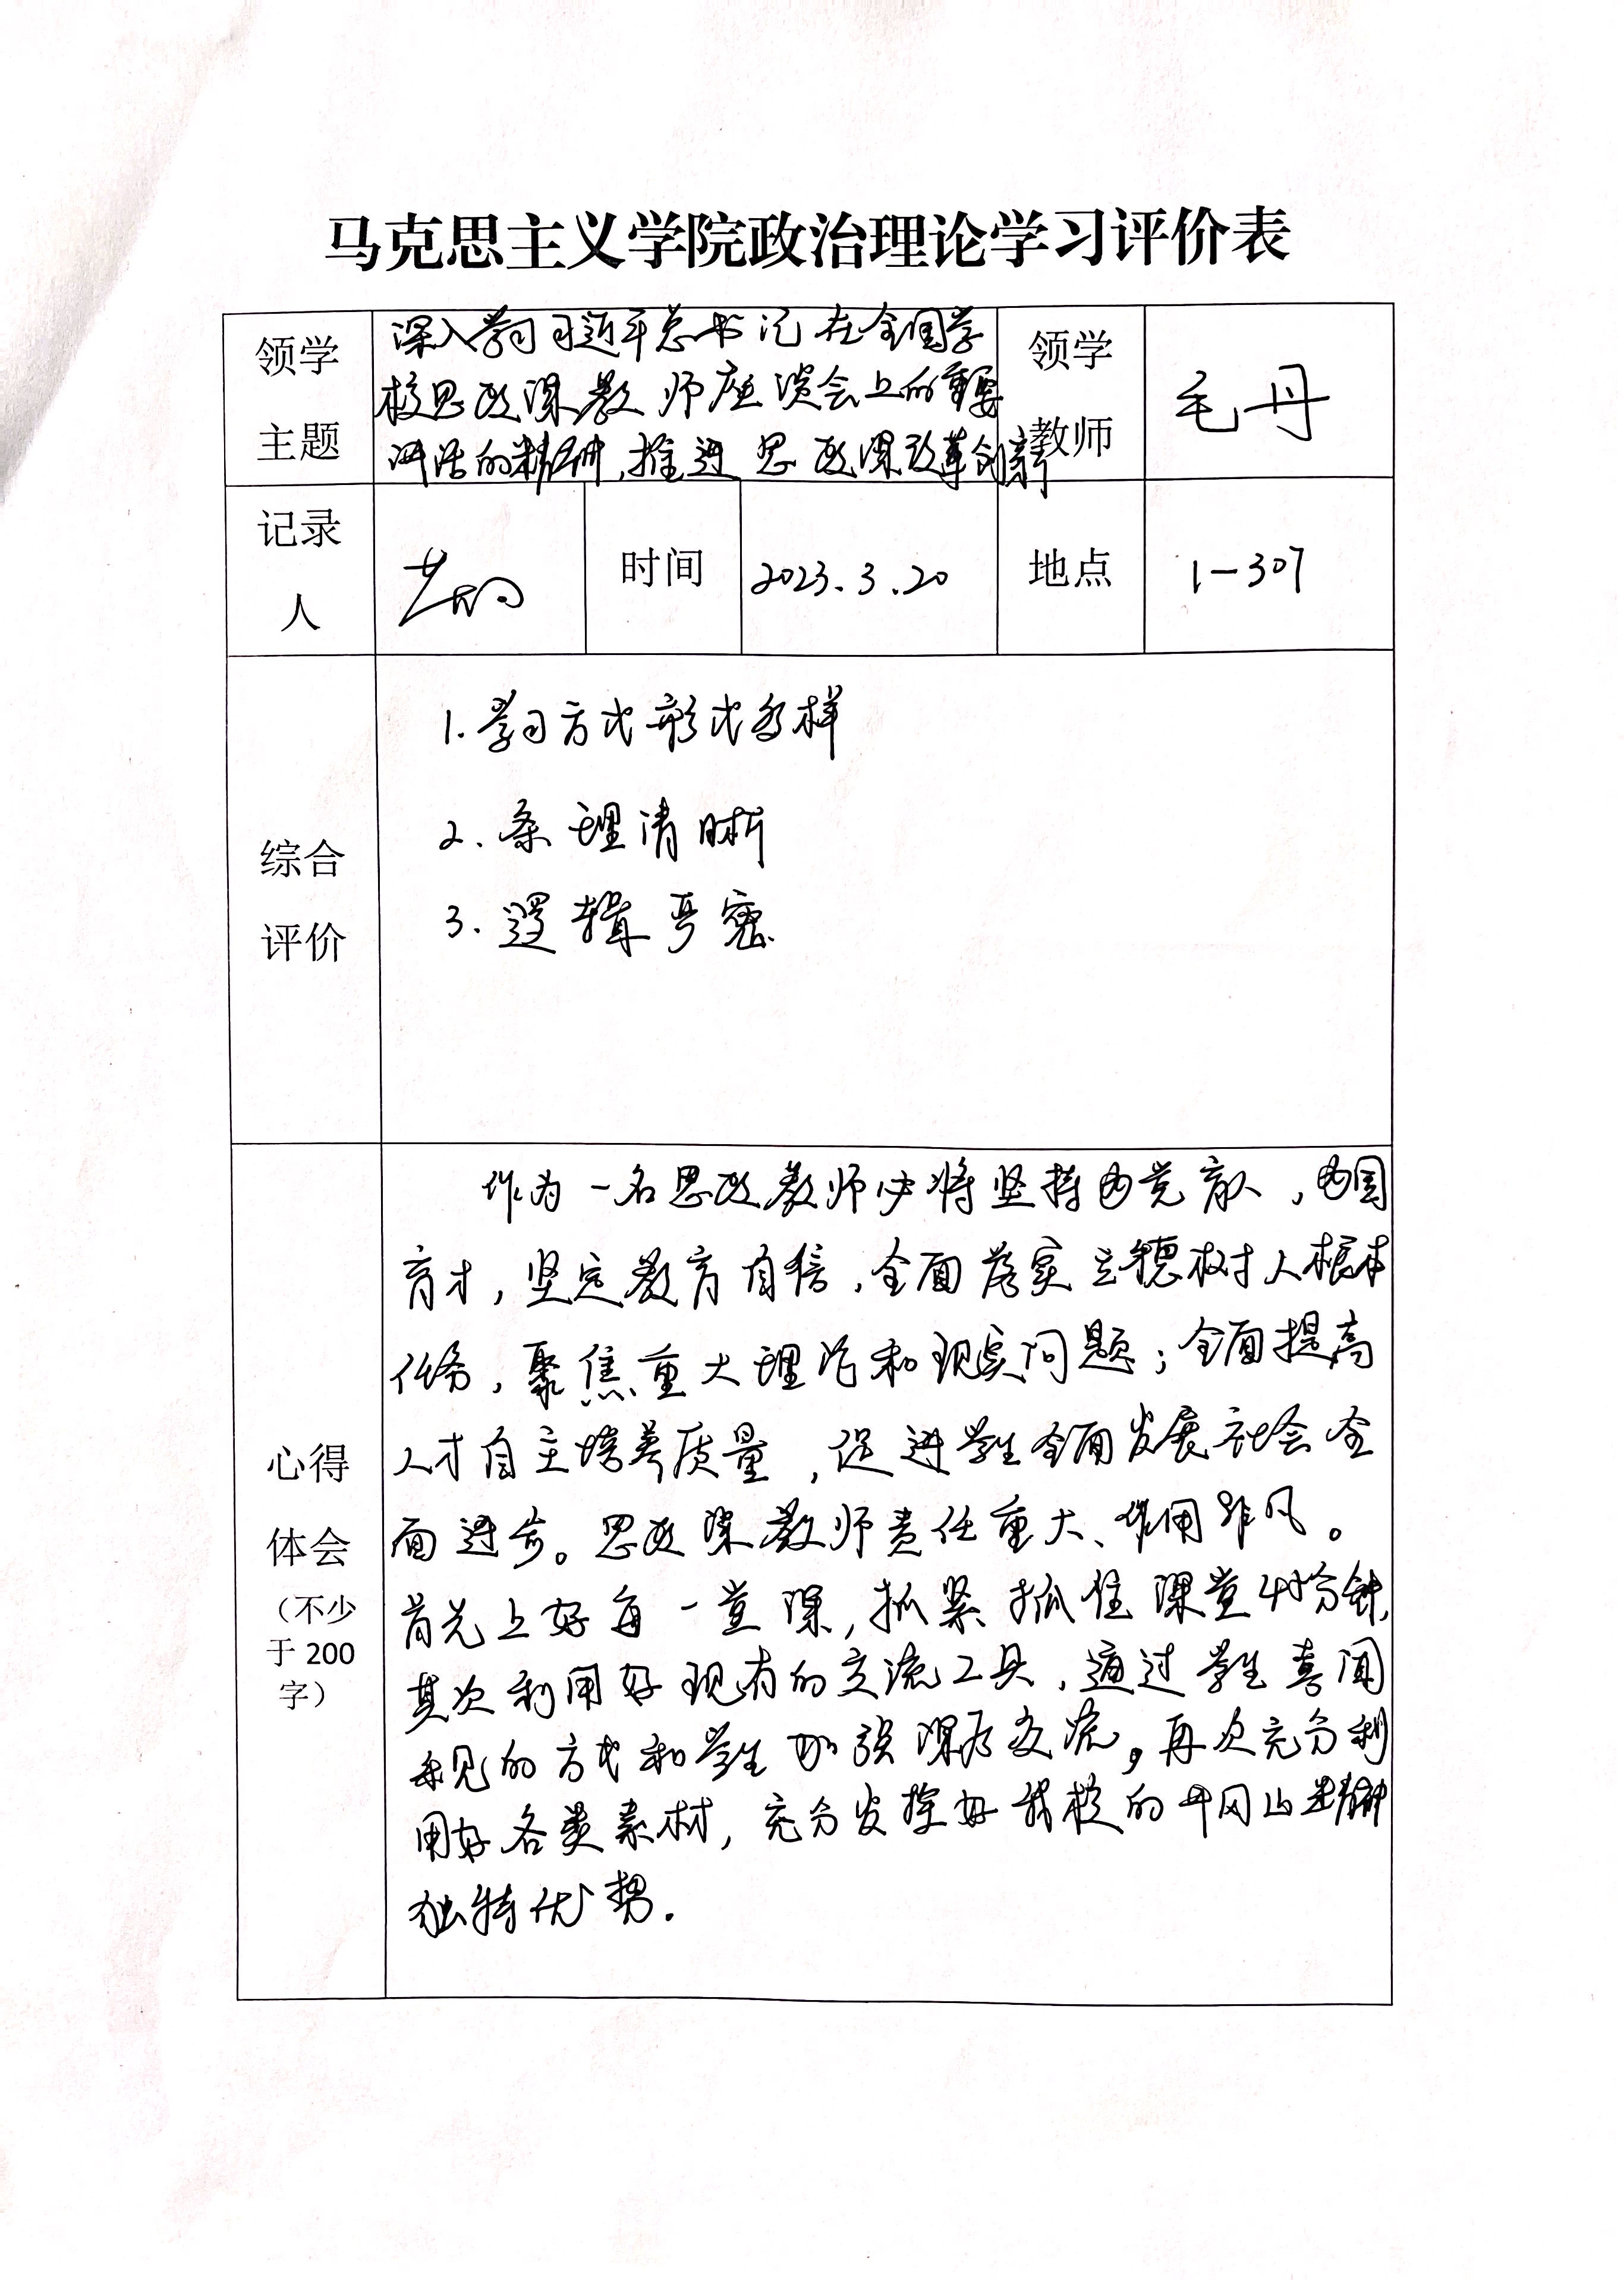 马克思主义学院政治理论学习评价表
领学
主题
深入学习习近平总书记在全国学
校思政课教师座谈会上的重要
讲话的精神,推进思政课改革创新
领学
教师
毛丹
记录
人
时间
2023.3.20
地点
1-307
综合
评价
1.学习方式形式多样
2.条理清晰
3.逻辑严密
心得
体会
(不少
于200
字)
作为一名思政教师必将坚持为党育人,为国
育才,坚定教育自信,全面落实立德树人根本
任务,聚焦重大理论和现实问题;全面提高
人才自主培养质量,促进学生全面发展社会全
面进步。思政课教师责任重大、作用非凡。
首先上好每一堂课,抓紧抓住课堂45分钟,
其次利用好现有的交流工具,通过学生喜闻
乐见的方式和学生加强课后交流。再次充分利
用好各类素材,充分发挥好我校的井冈山精神
独特优势.